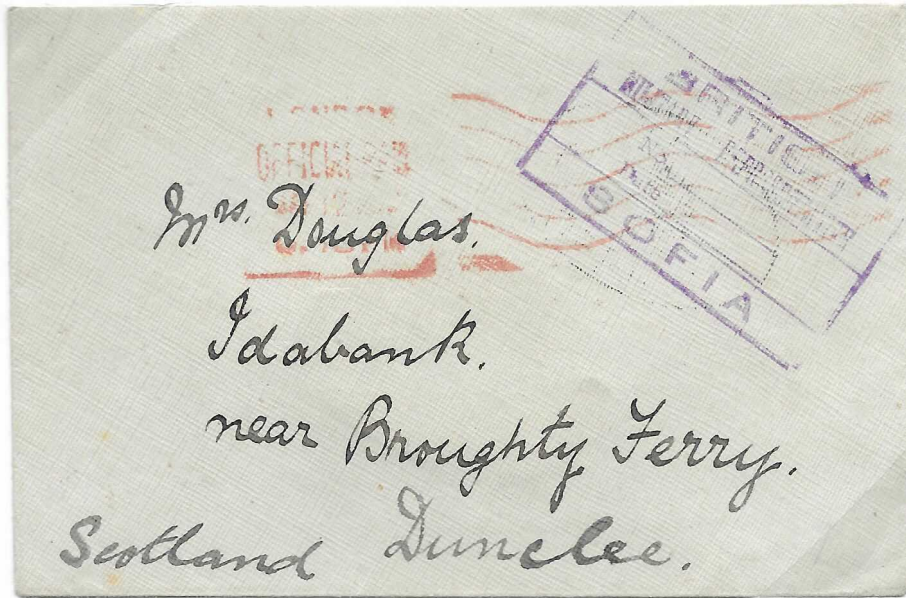 LONDON
OFFICIAL PAID
BRITISH
SOFIA
Mrs. Douglas.
Idabank.
near Broughty Ferry.
Scotland Dundee.